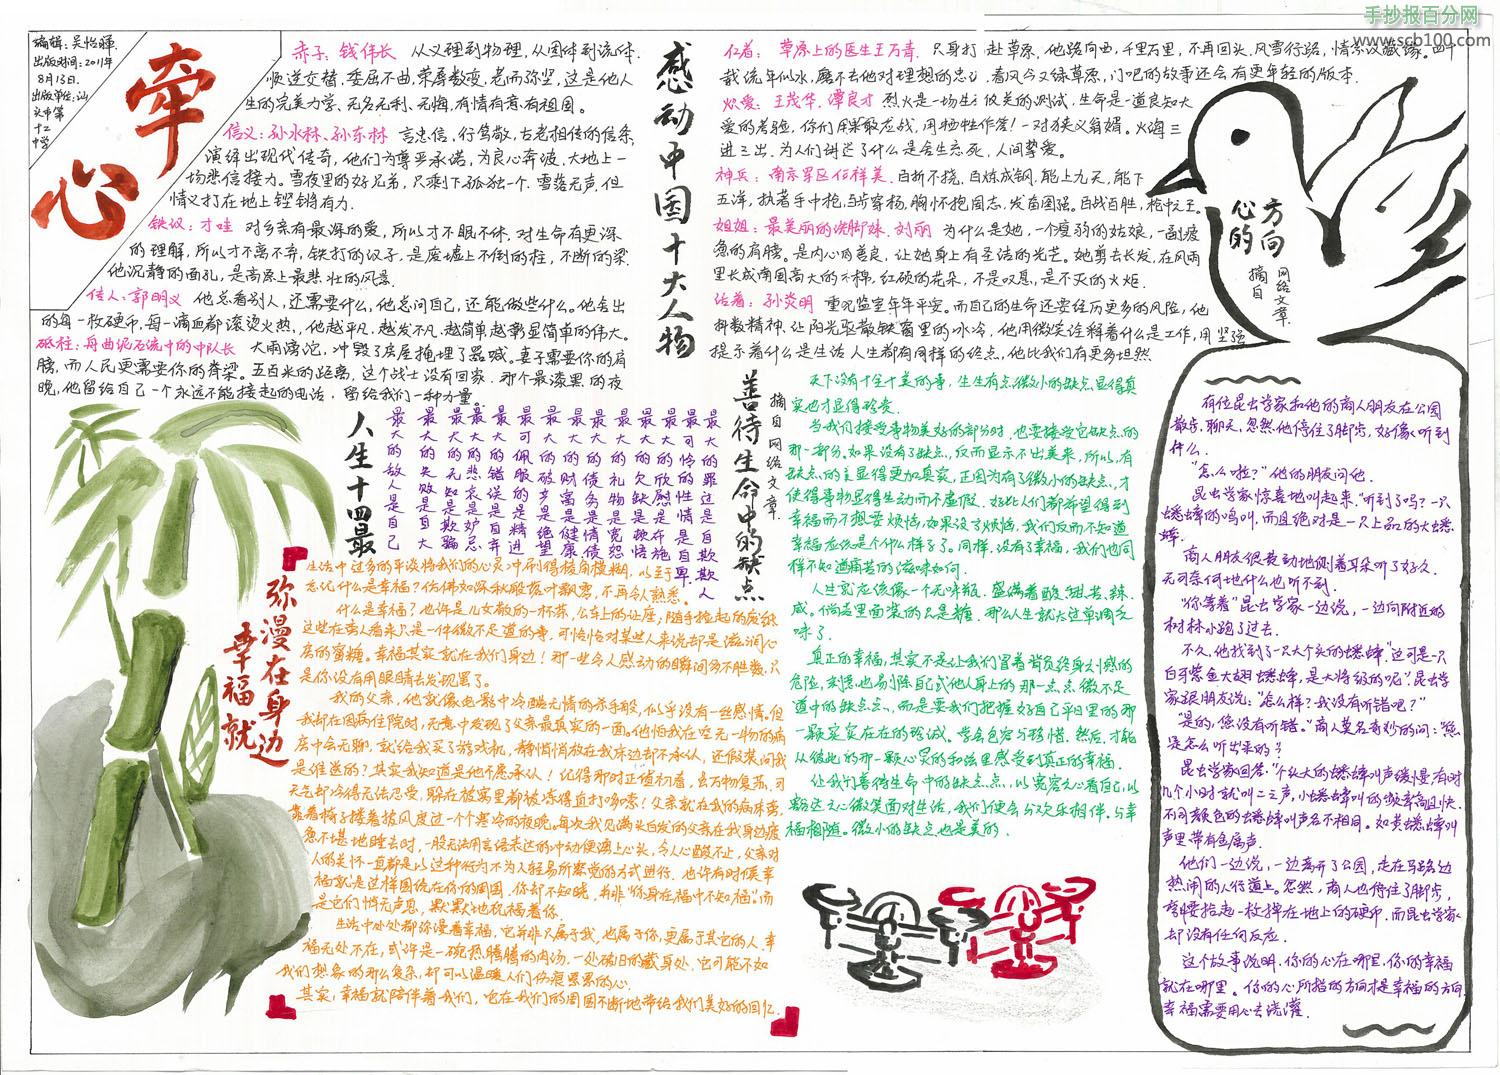 手抄报百分网
www.scb100.com
编辑:吴怡晖
出版时间:2011年
8月13日.
出版单位:汕
头市第
十二
中学
牵
心
赤子:钱伟长 从义理到物理,从固体到流体.
顺逆交替,委屈不曲,荣辱数变,老而弥坚,这是他人
生的完美力学、无名无利、无悔,有情有意,有祖国。
信义:孙水林、孙东林 言忠信,行笃敬,古老相传的信条,
演绎出现代传奇,他们为尊严承诺,为良心奔波,大地上一
场悲信接力。雪夜里的好兄弟,只剩下孤独一个.雪落无声,但
情义打在地上铿锵有力.
铁汉:才哇 对乡亲有最深的爱,所以才不眠不休.对生命有更深
的理解,所以才不离不弃,铁打的汉子,是废墟上不倒的柱,不断的梁.
他沉静的面孔,是高原上最悲壮的风景.
传人:郭明义 他总看别人,还需要什么,他总问自己,还能做些什么。他舍出
的每一枚硬币,每一滴血都滚烫火热,他越平凡,越发不凡,越简单越彰显简单的伟大。
砥柱:舟曲泥石流中的中队长 大雨滂沱,冲毁了房屋掩埋了哭喊。妻子需要你的肩
膀,而人民更需要你的脊梁。五百米的距离,这个战士没有回家,那个最漆黑的夜
晚,他留给自己一个永远不能接起的电话,留给我们一种力量。
感动中国十大人物
仁者: 草原上的医生王万青. 只身打赴草原,他路向西,千里万里,不再回头,风雪行路,情系汉藏缘.四十
载流年似水,磨不去他对理想的忠诚,春风今又绿草原,门吧的故事还会有更年轻的版本.
炽爱:王茂华、谭良才 烈火是一场生死攸关的测试,生命是一道良知大
爱的考验,你们用果敢应战,用牺牲作答!一对侠义翁婿,火海三
进三出,为人们讲述了什么是舍生忘死,人间挚爱。
神兵:南京军区何祥美.百折不挠,百炼成钢,能上九天,能下
五洋,执著手中枪,百步穿杨,胸怀报国志,发奋图强.百战百胜,枪中之王。
姐姐:最美丽的洗脚妹.刘丽 为什么是她,一个瘦弱的姑娘,一副疲
惫的肩膀。是内心的善良,让她身上有圣洁的光芒。她剪去长发,在风雨
里长成南国高大的木棉,红硕的花朵,不是叹息,是不灭的火炬.
给着:孙炎明 重犯监室年年平安,而自己的生命还要经历更多的风险,他
抖擞精神,让阳光驱散铁窗里的冰冷,他用微笑诠释着什么是工作,用坚强
提示着什么是生活.人生都有同样的终点,他比我们有更多坦然.
人生十四最
最大的敌人是自己
最大的失败是自大
最大的无知是欺骗
最大的悲哀是妒忌
最大的错误是自弃
最可佩服的是精进
最大的破步是绝望
最大的财富是健康
最大的债务是情债
最大的礼物是宽恕
最大的欠缺
最大的欣慰是布施
最可怜的性情是自卑
最大的罪过是自欺欺人
善待生命中的缺点
摘自网络文章.
天下没有十全十美的事,生生有点微小的缺点,显得真
实也才显得珍贵.
当我们接受事物美好的部分时,也要接受它缺点的
那一部分,如果没有了缺点,反而显示不出美来,所以,有
缺点的美显得更加真实,正因为有了微小的缺点,才
使得事物显得生动而不虚假.好比人们都希望得到
幸福而不想要烦恼,如果没了烦恼,我们反而不知道
幸福应该是个什么样子了。同样,没有了幸福,我们也同
样不知道痛苦的滋味如何.
人生宽应该像一个五味瓶,盛满着酸、甜、苦、辣、
咸。倘若里面装的只是糖,那么人生就太过单调乏
味了.
真正的幸福,其实不是让我们冒着背负终身之憾的
危险,刻意也易除自己或他人身上的那一点点微不足
道中的缺点点,而是要我们把握好自己平日里的那
一颗实实在在的珍诚。学会包容与珍惜.然后,才能
从彼此的那一颗心灵的和弦里感受到真正的幸福.
让我们善待生命中的缺点点,以宽容之心看自己,以
豁达之心微笑面对生活,我们便会分欢乐相伴,与幸
福相随。微小的缺点也是美的.
弥漫在身边
幸福就
生活中过多的平淡将我们的心灵冲刷得棱角模糊,以至于
忘记什么是幸福?仿佛如深秋般落叶飘零,不再令人熟悉.
什么是幸福?也许是儿女敬的一杯茶,公车上的让座;随手捡起的废纸
这些在旁人看来只是一件微不足道的事,可恰恰对某些人来说却是滋润心
房的蜜糖。幸福其实就在我们身边!那一些令人感动的瞬间多不胜数,只
是你没有用眼睛去发现罢了。
我的父亲,他就像电影中冷酷无情的杀手般,似乎没有一丝感情。但
我却在因病住院时,无意中发现了父亲最真实的一面。他怕我在空无一物的病
房中会无聊,就给我买了游戏机,静悄悄放在我床边却不承认,还假装问我
是谁送的?其实我知道是他不愿承认!记得那时正值初春,虽万物复苏,可
天气却冷得无法忍受,躲在被窝里都被冻得直打哆嗦!父亲就在我的病床旁,
靠着椅子搂着披风度过一个个寒冷的夜晚。每次我见满头白发的父亲在我身边疲
惫不堪地睡去时,一股无法用言语表达的冲动便涌上心头,令人心酸不止,父亲对
人的关怀一直都是以这种行为不为人轻易所察觉的方式进行.也许有时候幸
福就是这样围绕在你的周围,你却不知晓,并非"你身在福中不知福",而
是它们悄无声息,默默地祝福着你.
生活中处处都弥漫着幸福,它并非只属于我,也属于你,更属于其它的人.幸
福无处不在,或许是一碗热腾腾的肉汤,一处破旧的藏身处.它可能不如
我们想象的那么复杂,却可以温暖人们伤痕累累的心.
其实,幸福就陪伴着我们,它在我们的周围不断地带给我们美好的回忆.
方向
心的
网络文章.
摘自
有位昆虫学家和他的商人朋友在公园
散步、聊天,忽然他停住了脚步,好像听到
什么.
"怎么啦?"他的朋友问他.
昆虫学家惊喜地叫起来."听到了吗?一只
蟋蟀的鸣叫,而且绝对是一只上品的大蟋
蟀.
商人朋友很费劲地侧着耳朵听了好久.
无可奈何地什么也听不到.
"你等着"昆虫学家一边说,一边向附近的
树林小跑了过去.
不久,他找到了一只大个头的蟋蟀."这可是一只
白牙紫金大翅蟋蟀,是大将级的呢".昆虫学
家跟朋友说:"怎么样?我没有听错吧?"
"是的,您没有听错."商人莫名奇妙的问:"您
是怎么听出来的?
昆虫学家回答."个头大的蟋蟀叫声缓慢,有时
几个小时就叫二三声,小蟋蟀叫的频率高且快.
不同颜色的蟋蟀叫声各不相同.如黄蟋蟀叫
声里带有金属声.
他们一边说,一边离开了公园,走在马路边
热闹的人行道上。忽然,商人也停住了脚步,
弯腰拾起一枚掉在地上的硬币.而昆虫学家
却没有任何反应.
这个故事说明.你的心在哪里,你的幸福
就在哪里。你的心所指的方向才是幸福的方向.
幸福需要用心去浇灌.